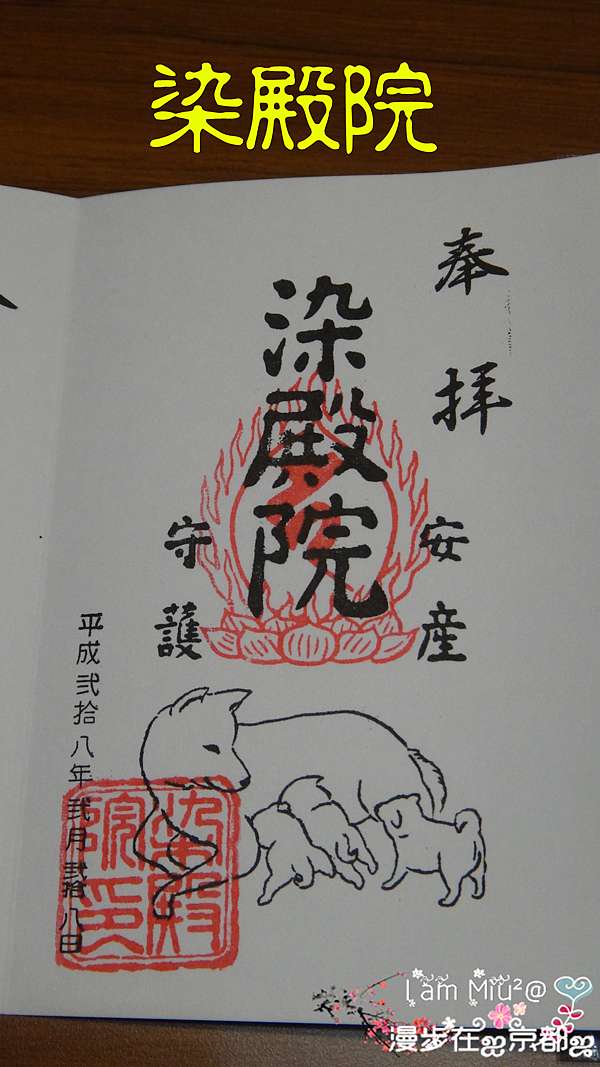 染殿院
奉拝
染殿院
安産
守護
平成弐拾八年弐月弐拾八日
染殿
院印
I am Miu²@
漫步在 京都